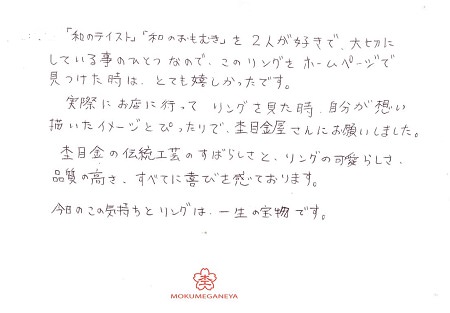 「和のテイスト」「和のおもむき」を2人が好きで、大切に
している事のひとつなので、このリングをホームページで
見つけた時は、とても嬉しかったです。
実際にお店に行ってリングを見た時、自分が想い
描いたイメージとぴったりで、杢目金屋さんにお願いしました。
杢目金の伝統工芸のすばらしさと、リングの可愛らしさ、
品質の高さ、すべてに喜びを感じております。
今日のこの気持ちとリングは、一生の宝物です。
杢
MOKUMEGANEYA